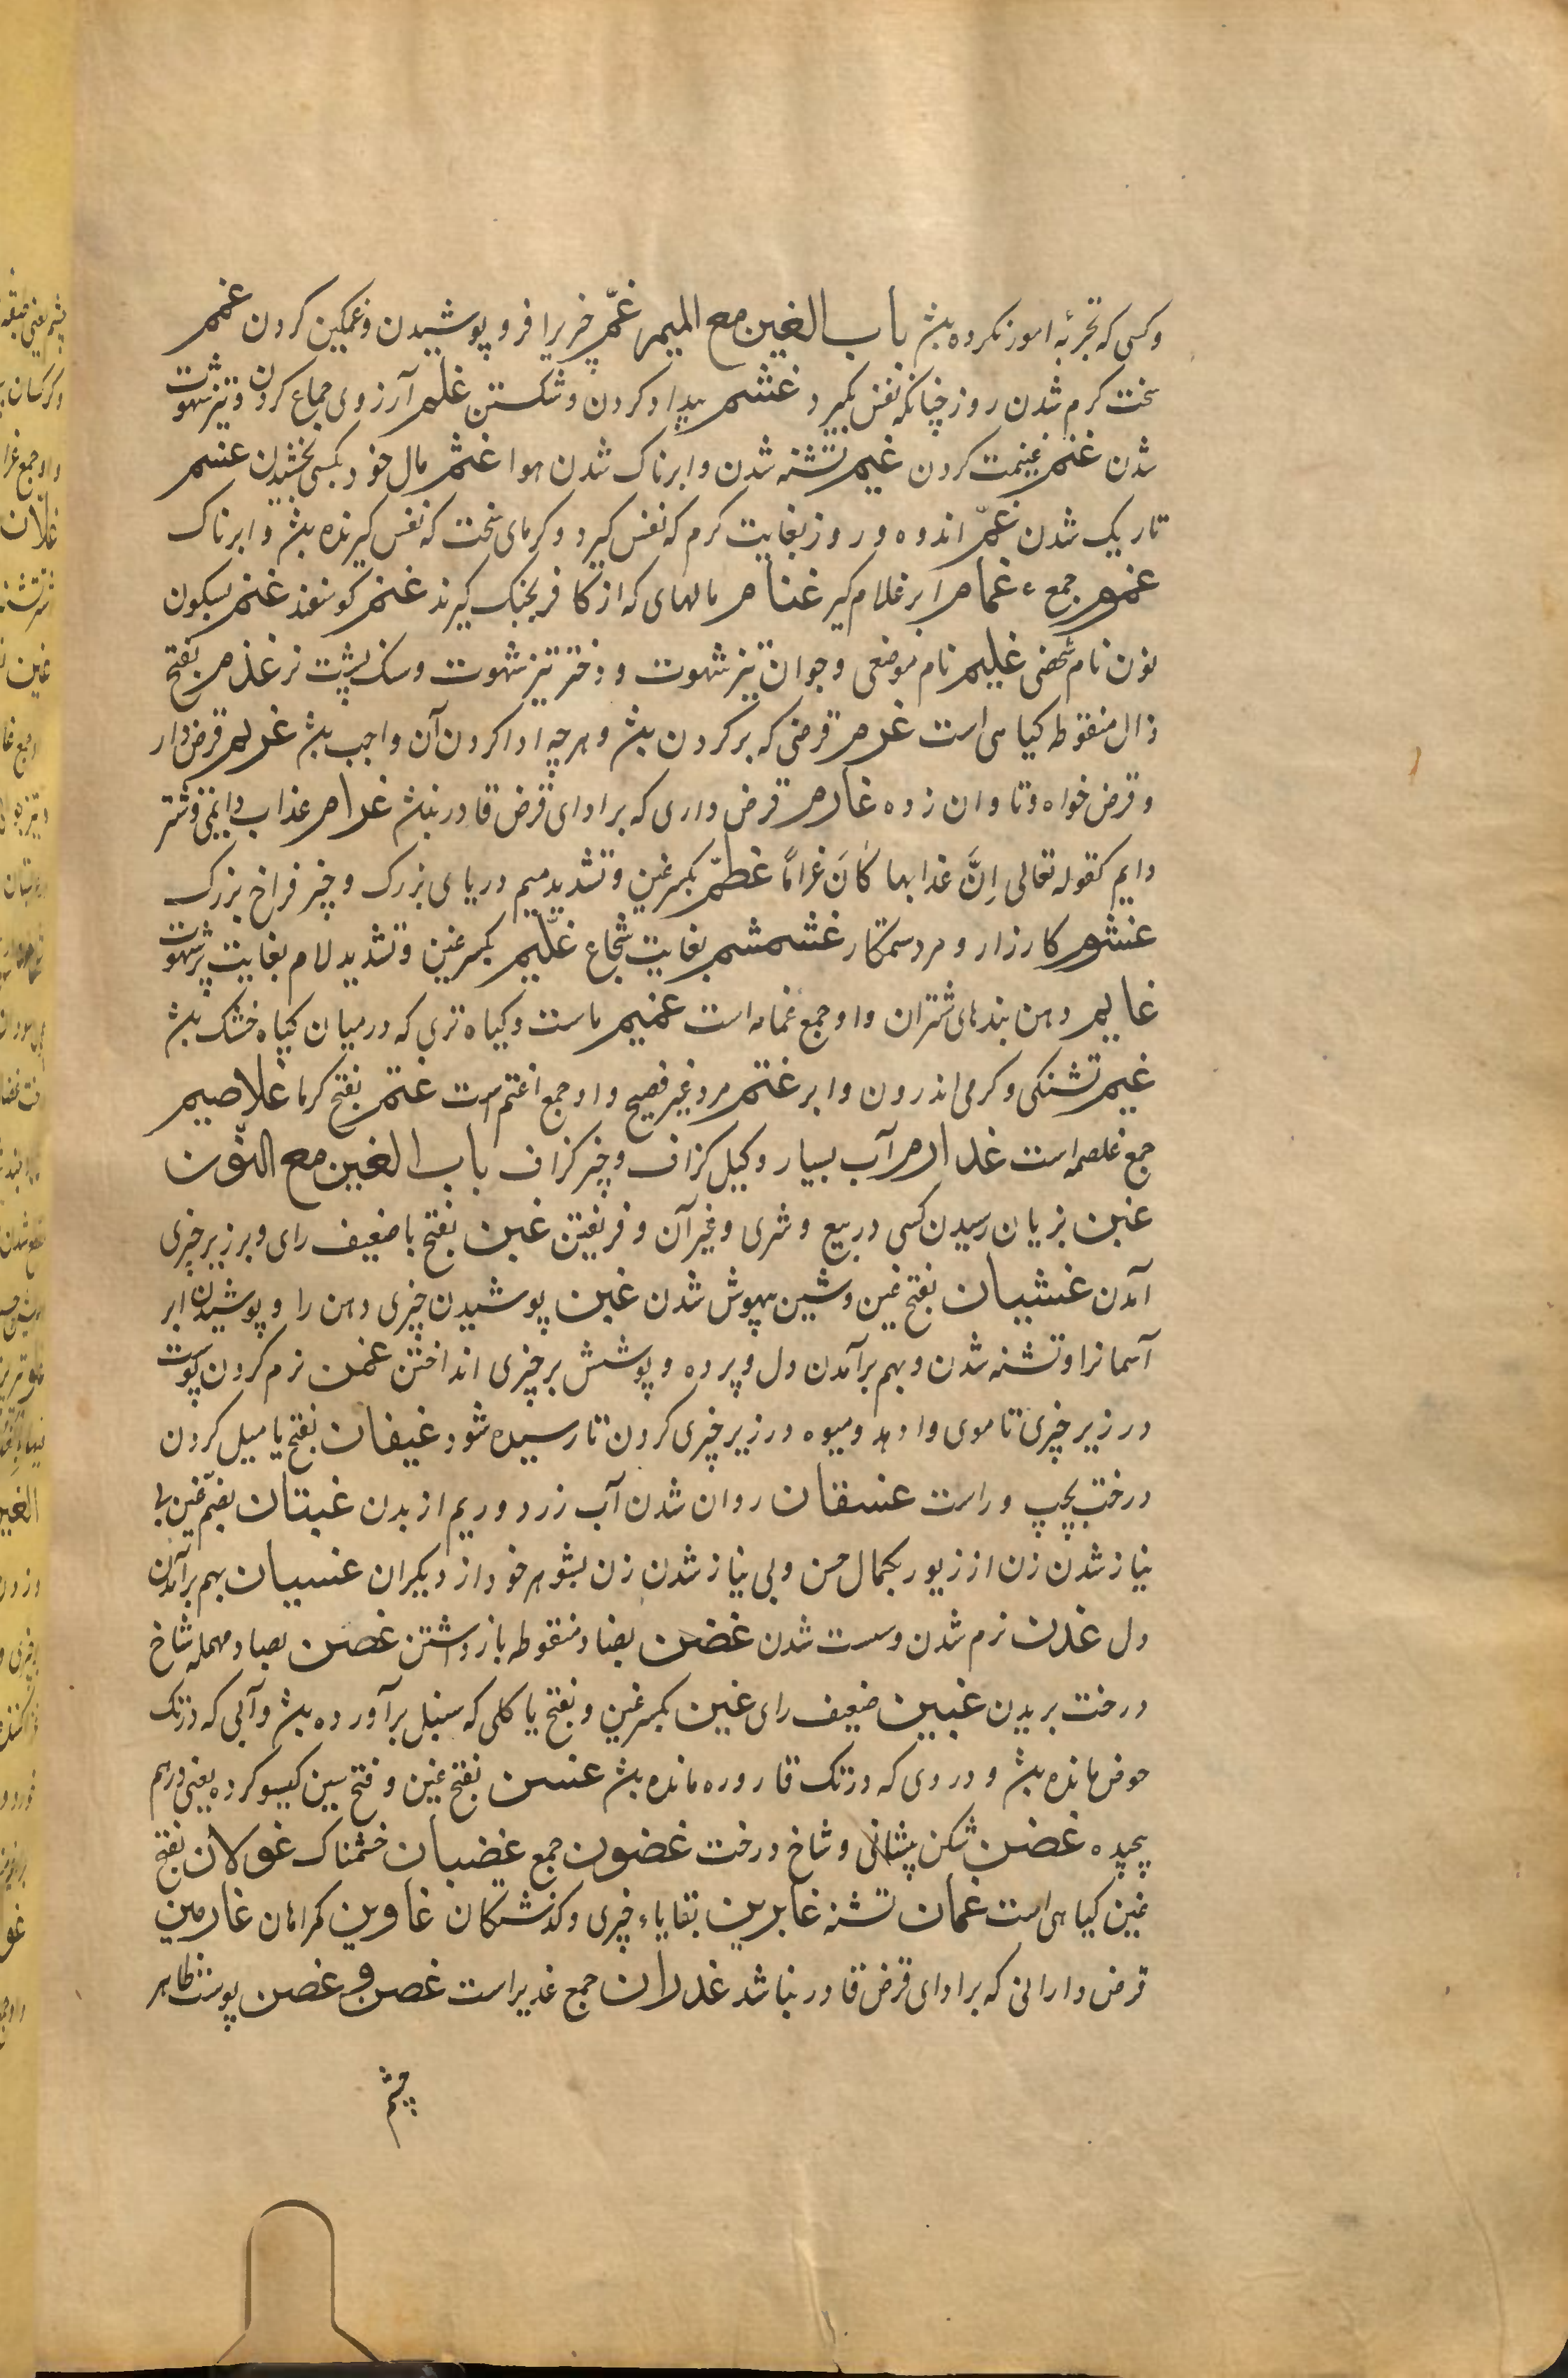 وکسی که تجربهٔ امور نکرده بشد باب الغین مع المیم غمّ چیزیرا فرو پوشیدن و غمکین کردن غمم
سخت کرم شدن روز چنانکه نفس بکیرد غشم بیداد کردن و شکستن غلم آرزوی جماع کردن و تیز شهوت
شدن غنم غنیمت کردن غیم تشنه شدن و ابرناک شدن هوا غثم مال خود بکسی بخشیدن غسم
تاریک شدن غمّ اندوه و روز بغایت کرم که نفس کیرد و کرمای سخت که نفس کیرنده بشد و ابرناک
غموم جمع ء غمام ابر غلام کیر غنام مالهای که از کافر بجنک کیرند غنم کوسفند غنم بسکون
نون نام شخصی غیلم نام موضعی و جوان تیز شهوت و دختر تیز شهوت و سنک پشت نر غذم بفتح
ذال منقوطه کیاهی است غرم قرضی که بر کردن بشد و هرچه ادا کردن آن واجب بشد غریم قرض دار
و قرض خواه و تاوان زده غارم قرض داری که بر ادای قرض قادر نبشد غرام عذاب دایمی و شر
دایم کقوله تعالی اِنَّ عذابها کَانَ غرامًا غطمّ بکسر غین و تشدید میم دریای بزرک و چیز فراخ بزرک
غشوم کارزار و مرد ستمکار غشمشم بغایت شجاع غلّیم بکسر غین و تشدید لام بغایت پر شهوت
غمایم دهن بندهای شتران و او جمع غمامه است غمیم ماست و کیاه تری که در میان کیاه خشک بشد
غیم تشنکی و کرمی اندرون و ابر غتم مرد غیر فصیح و او جمع اغتم است غتم بفتح کرما غلاصیم
جمع غلصمه است غذارم آب بسیار و کیل کزاف و چیز کزاف باب الغین مع النّون
غبن بزیان رسیدن کسی در بیع و شری و غیر آن و فریفتن غبن بفتح با ضعیف رای و بر زبر چیزی
آمدن غشیان بفتح غین و شین بیهوش شدن غین پوشیدن چیزی دهن را و پوشیدن ابر
آسمانرا و تشنه شدن و بهم برآمدن دل و پرده و پوشش بر چیزی انداختن غمن نرم کردن پوست
در زیر چیزی تا موی وا دهد و میوه در زیر چیزی کردن تا رسیده شود غیفان بفتح یا میل کردن
درخت بچپ و راست غسقان روان شدن آب زرد و ریم از بدن غنیان بضمّ غین بی
نیاز شدن زن از زیور بکمال حسن و بی نیاز شدن زن بشوهر خود از دیکران غسیان بهم برآمدن
دل غدن نرم شدن و سست شدن غضن بضاد منقوطه باز داشتن غصن بصاد مهمله شاخ
درخت بریدن غبین ضعیف رای غین بکسر غین و بفتح یا کلی که سیل برآورده بشد و آبی که در تک
حوض مانده بشد و دردی که در تک قاروره مانده بشد غسن بفتح غین و فتح سین کیسو کرده یعنی درهم
پیچیده غضن شکن پیشانی و شاخ درخت غضون جمع غضبان خشمناک غولان بفتح
غین کیاهی است غمان تشنه غابرین بقایاء چیزی و کذشتکان غاوین کمراهان غارمین
قرض دارانی که بر ادای قرض قادر نباشد غدران جمع غدیر است غصن و غضن پوست ظاهر
چشم